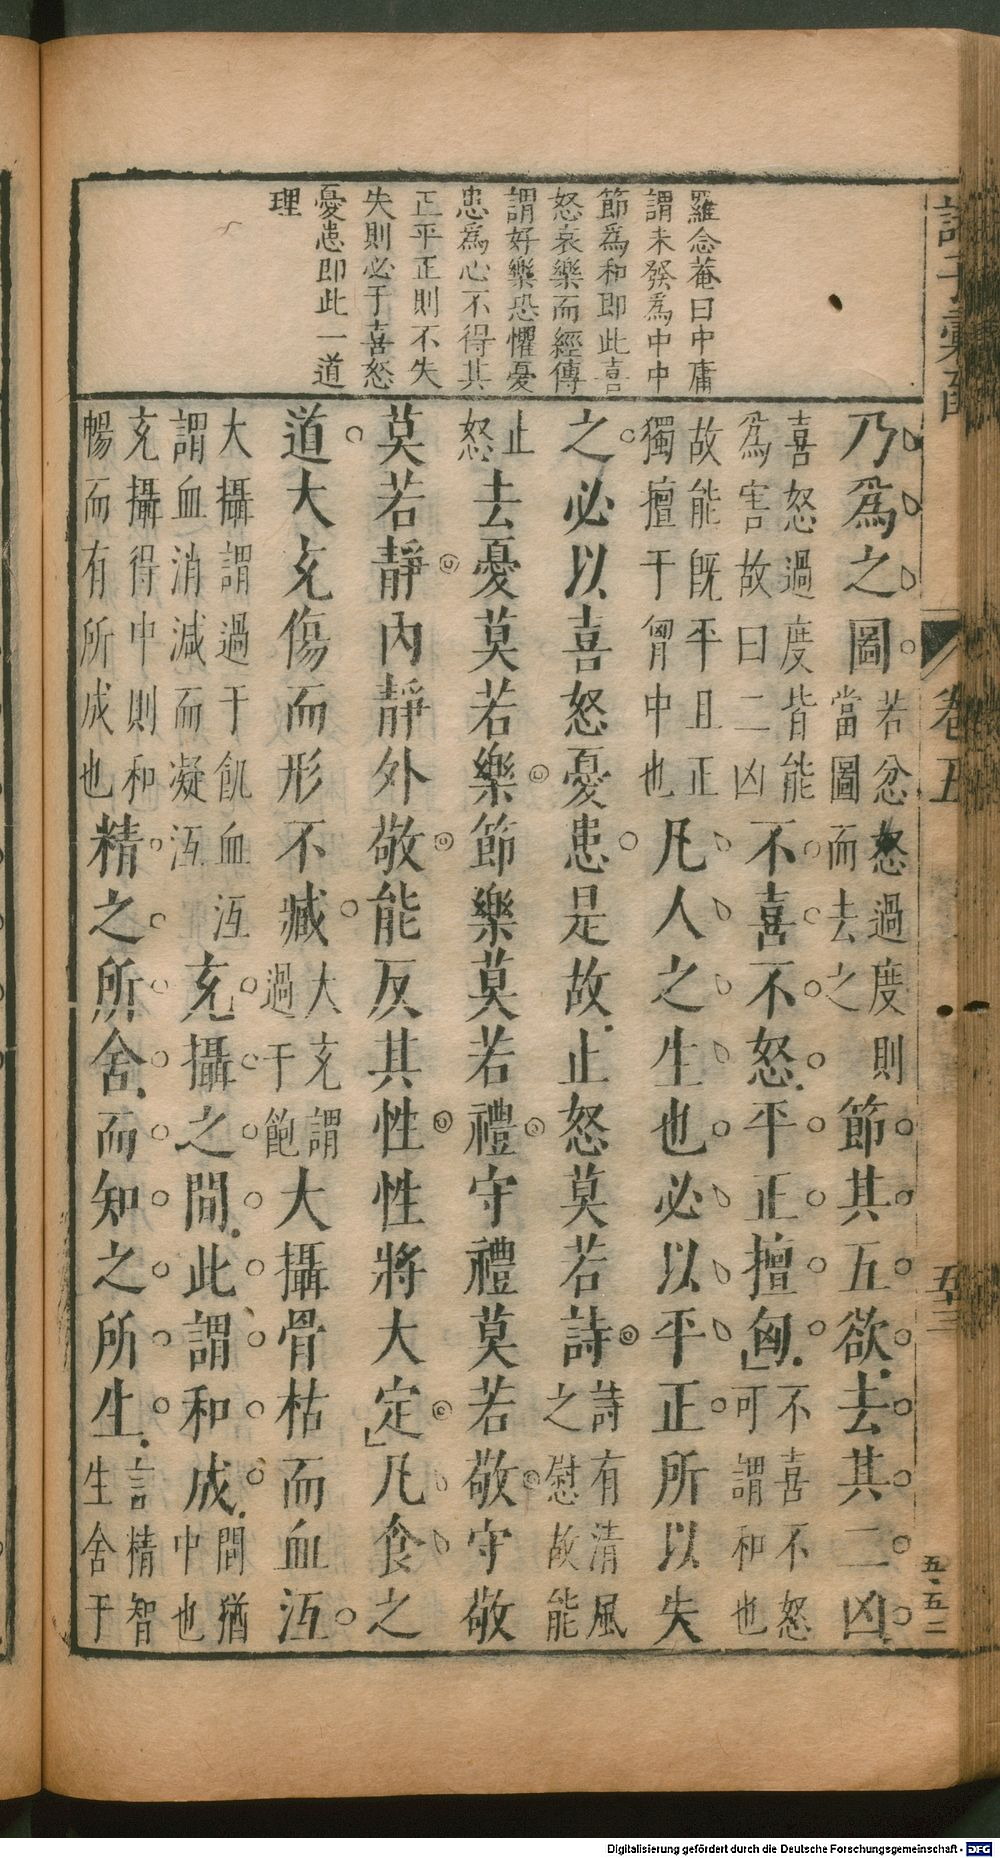 羅念菴曰中庸
謂未發爲中中
節爲和即此喜
怒哀樂而經傳
謂好樂恐懼憂
患爲心不得其
正平正則不失
失則必于喜怒
憂患即此一道
理
乃爲之圖若忿怒過度則當圖而去之節其五欲去其二凶
喜怒過度皆能爲害故曰二凶不喜不怒平正擅匈不喜不怒可謂和也
故能旣平且正獨擅于胷中也凡人之生也必以平正所以失
之必以喜怒憂患是故止怒莫若詩詩有清風之慰故能
止怒去憂莫若樂節樂莫若禮守禮莫若敬守敬
莫若靜內靜外敬能反其性性將大定凡食之
道大充傷而形不臧大充謂過于飽大攝骨枯而血沍
大攝謂過于飢血沍謂血消減而凝沍充攝之間此謂和成間猶中也
充攝得中則和暢而有所成也精之所舍而知之所生言精智生舍于
卷五
五十三
五五二
Digitalisierung gefördert durch die Deutsche Forschungsgemeinschaft - DFG